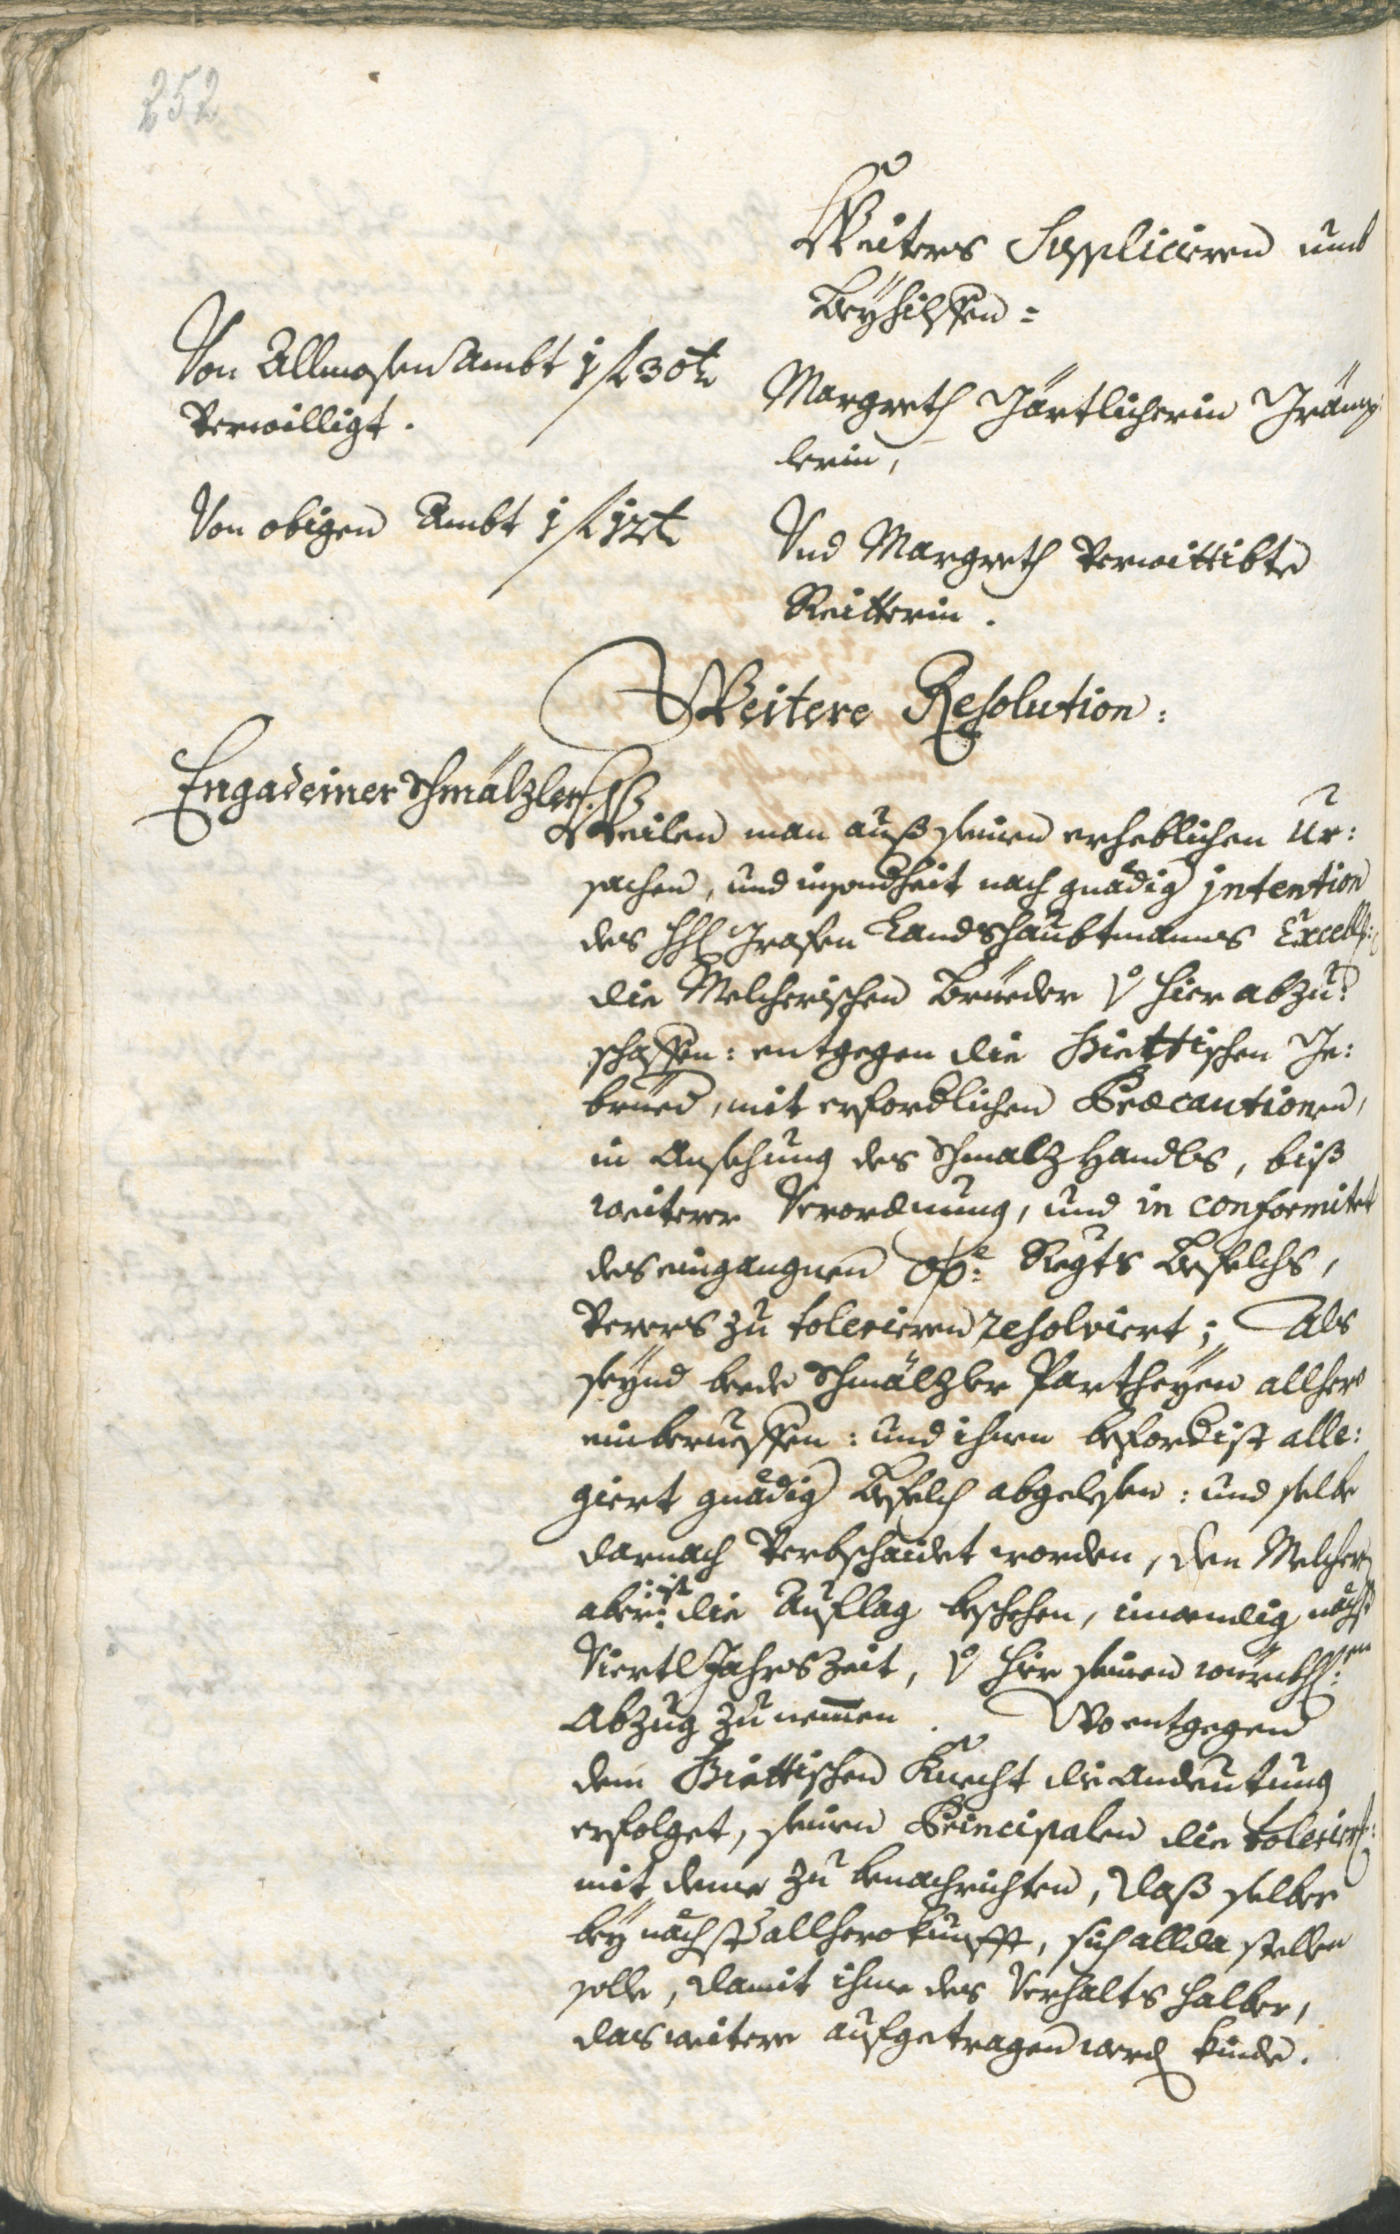 252
Weiters Suppliciern umb
Beÿhilffen:
Von Allmosen Ambt 1 f 30 kr
Verwilligt.
Margreth Järtlicherin Främp
lerin,
Von obigen Ambt 1 f 12 kr
Vnd Margreth Verwittibte
Reitterin.
Weitere Resolution:
Engadeiner Schmälzler.
Weilen man auß seinen erheblichen Ur:
sachen, und insondheit nach gnädig intention
des Grafen Landshaubtmanns Excell:
die Melcherischen Brüeder V: hier abzu:
schaffen: entgegen die Hiettischen Ge:
brüed, mit erfordlichen Præcautionen,
in Ansehung des Schmalz Handls, biß
weiterer Verordnung, und in conformitet
des eingangnen Regts Befelchs,
Verers zu toleriern resolviert; Als
seÿnd beede Schmälzler Partheÿen allhero
einberueffen: und ihnen alle:
giert gnädig Befelch abgelesen: und selbe
darnach Verbschaidet worden, den Melchern
aber ist die Auflag beschehen, innerhalb nägst
Viertl Jahrs Zeit, V: hier seinen würckhl:en
Abzug zu nemmen. Wo entgegen
dem Hiettischen Knecht die Andeutung
erfolget, seinen Principalen die tolerier:
mit deme zu benachrichten, daß selber
beÿ nächst allherokunfft, sich allda stellen
solle, damit ihme des Verhalts halber,
das weitere aufgetragen werd künde.